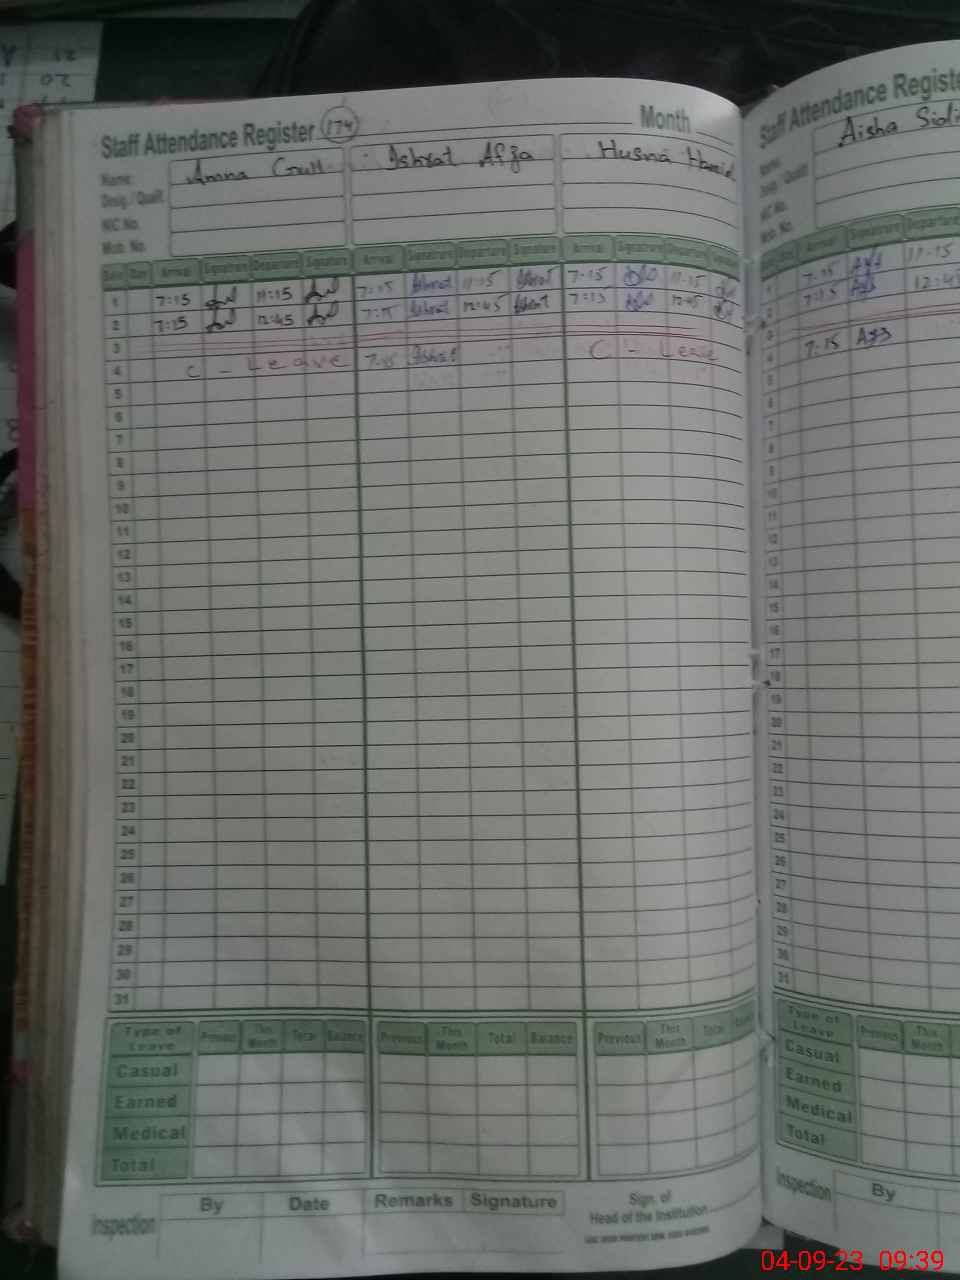 Staff Attendance Register 174 Month
Name: Amna Gull Ishrat Afza Husna Hamid
Desig. / Qualif.
NIC No.
Mob. No.
Date Day Arrival Signature Departure Signature Arrival Signature Departure Signature Arrival Signature Departure
1 7:15 11:15 7:15 Ishrat 11:15 Ishrat 7:15 11:15
2 7:15 12:45 7:15 Ishrat 12:45 Ishrat 7:15 12:45
3
4 C - Leave 7:15 Ishrat C - Leave
5
6
7
8
9
10
11
12
13
14
15
16
17
18
19
20
21
22
23
24
25
26
27
28
29
30
31
Type of Leave Previous This Month Total Balance Previous This Month Total Balance Previous This Month Total
Casual
Earned
Medical
Total
Inspection By Date Remarks Signature Sign. of
Head of the Institution
Staff Attendance Registe
Aisha
Name:
Desig. / Qualif.
NIC No.
Mob. No.
Arrival Signature Departure
1 7:15 11:15
2 7:15 12:4
3
4 7:15
5
6
7
8
9
10
11
12
13
14
15
16
17
18
19
20
21
22
23
24
25
26
27
28
29
30
31
Type of Leave Previous This Month
Casual
Earned
Medical
Total
Inspection By
04-09-23 09:39